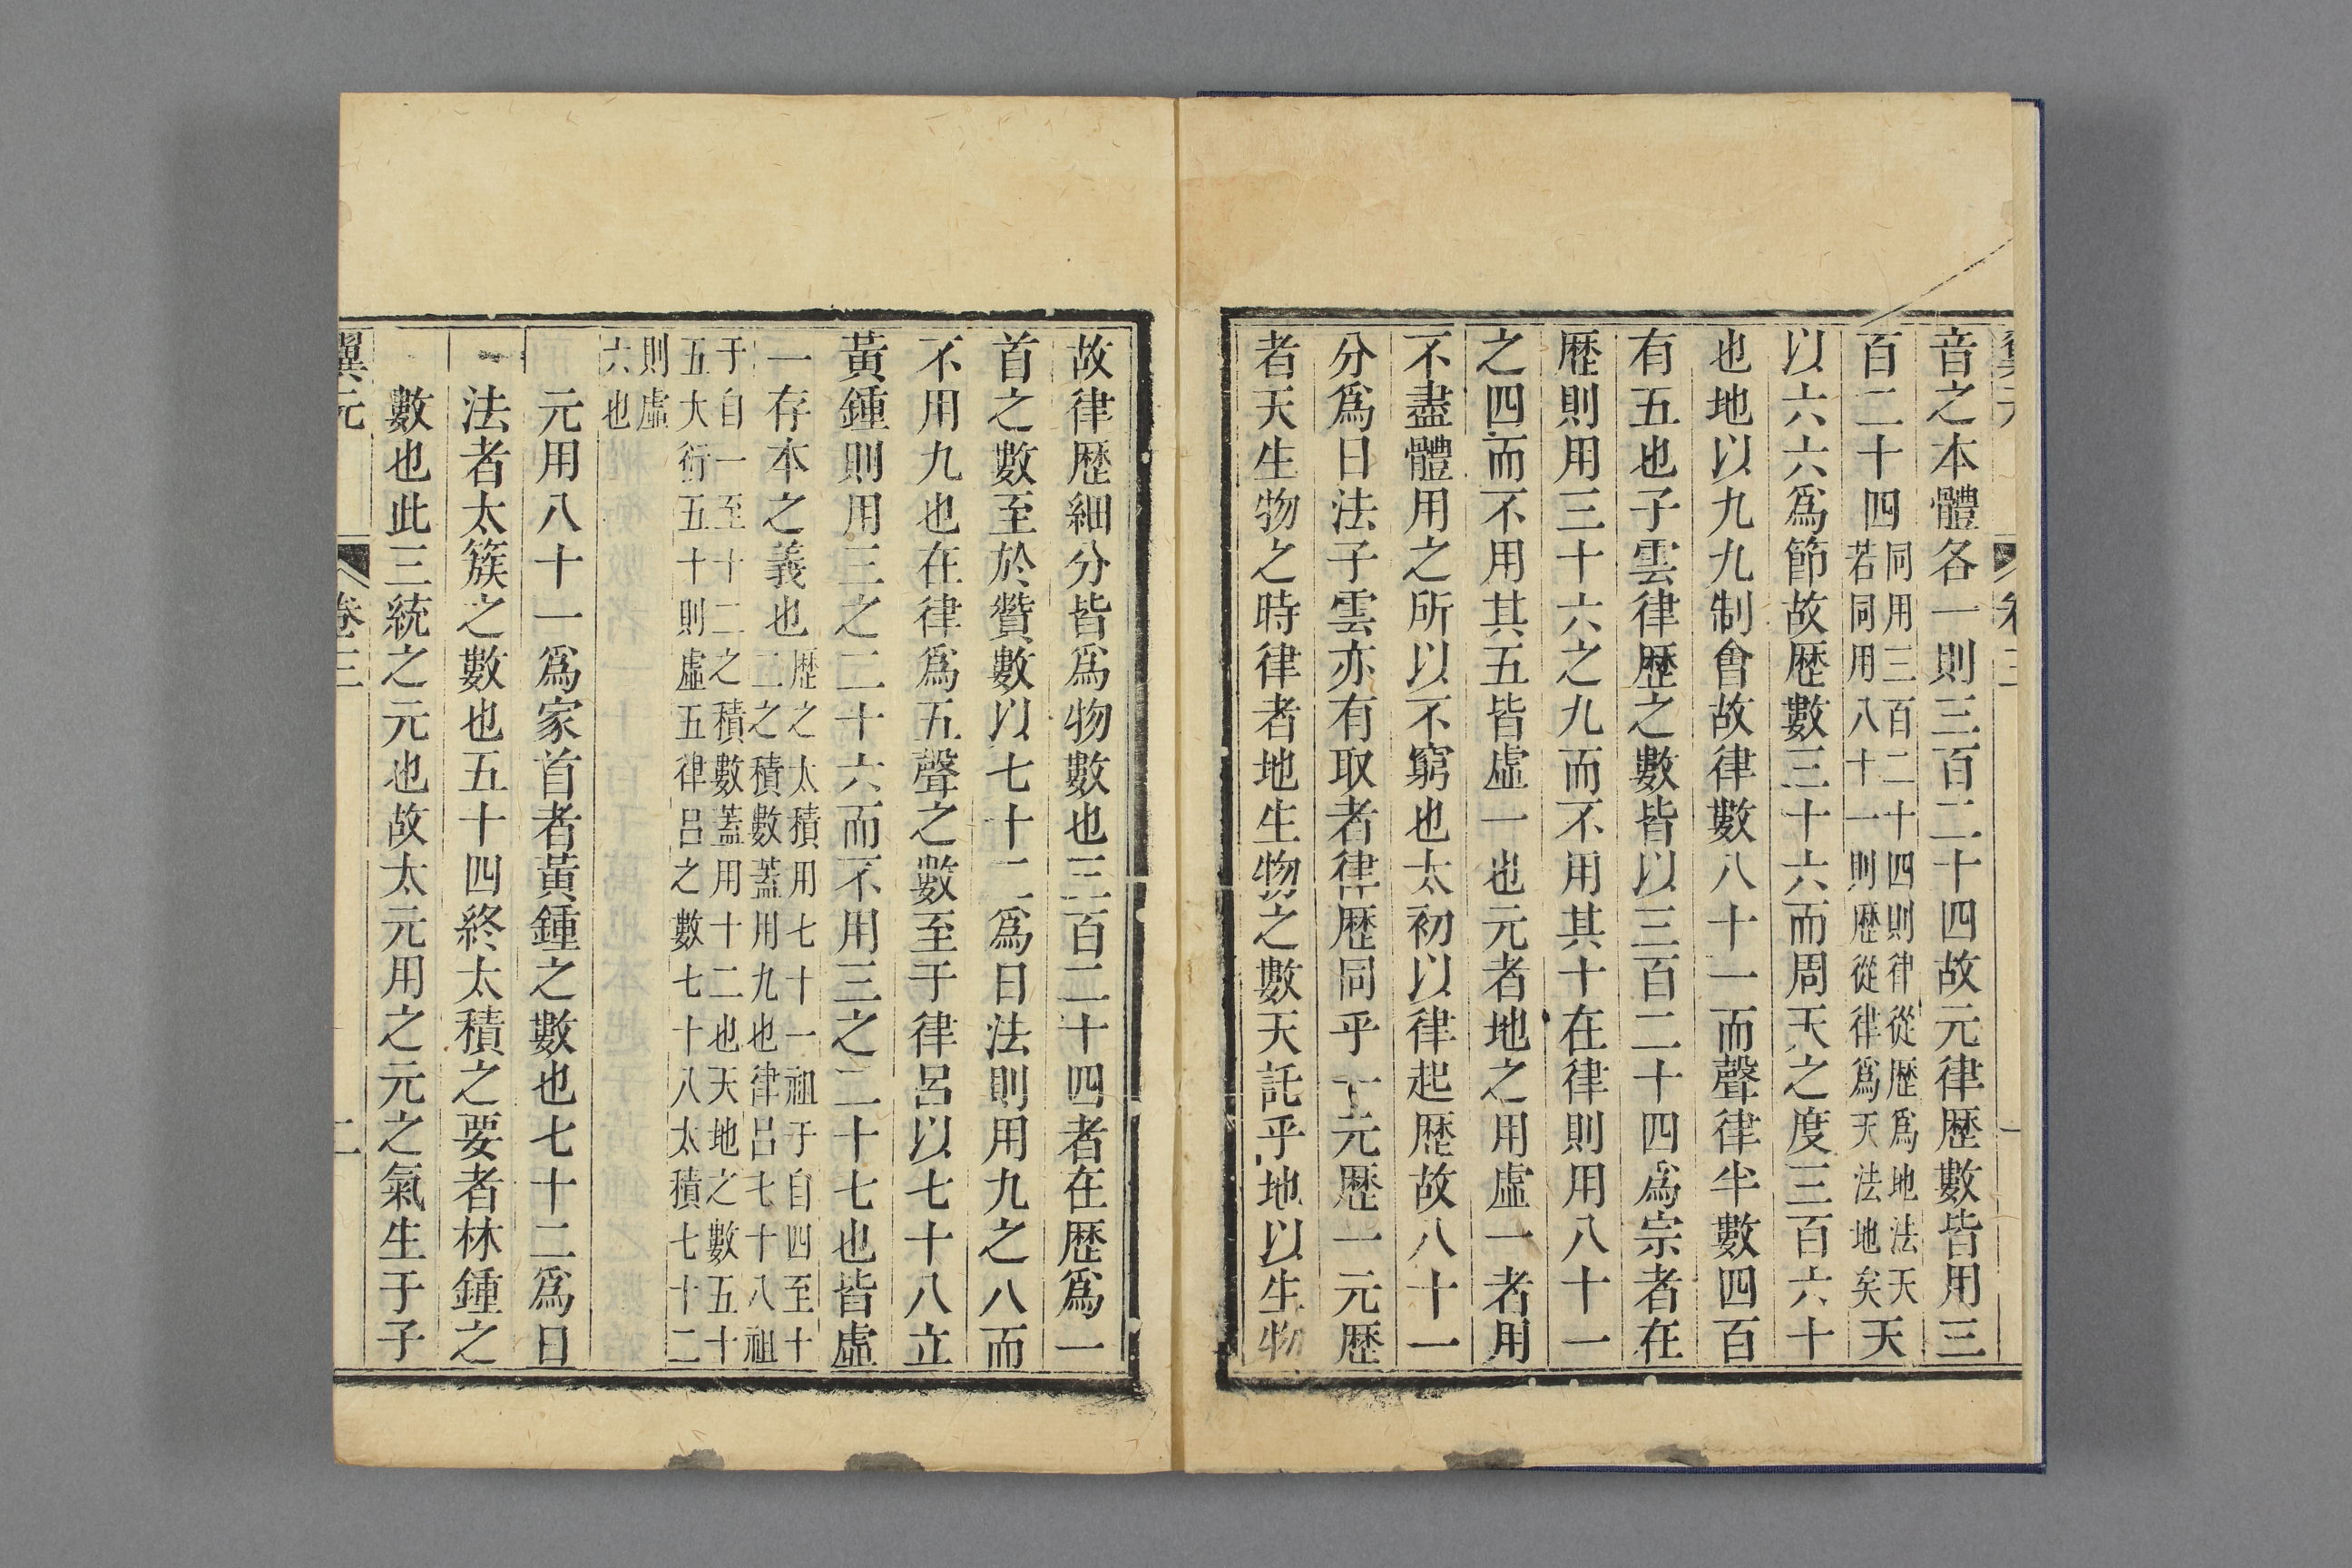 音之本體各一則三百二十四故元律歷數皆用三
百二十四同用三百二十四則律從歷爲地法天若同用八十一則歷從律爲天法地矣天
以六六爲節故歷數三十六而周天之度三百六十
也地以九九制會故律數八十一而聲律半數四百
有五也子雲律歷之數皆以三百二十四爲宗者在
歷則用三十六之九而不用其十在律則用八十一
之四而不用其五皆虛一也元者地之用虛一者用
不盡體用之所以不窮也太初以律起歷故八十一
分爲日法子雲亦有取者律歷同乎一元歷一元歷
者天生物之時律者地生物之數天託乎地以生物
故律歷細分皆爲物數也三百二十四者在歷爲一
首之數至於贊數以七十二爲日法則用九之八而
不用九也在律爲五聲之數至于律呂以七十八立
黃鍾則用三之二十六而不用三之二十七也皆虛
一存本之義也歷之太積用七十一祖于自四至十二之積數蓋用九也律呂七十八祖
于自一至十二之積數蓋用十二也天地之數五十五大衍五十則虛五律呂之數七十八太積七十二
則虛六也
元用八十一爲家首者黃鍾之數也七十二爲日
法者太簇之數也五十四終太積之要者林鍾之
數也此三統之元也故太元用之元之氣生于子
翼元 卷三 二